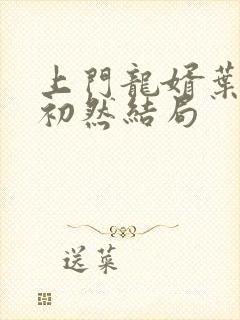 上門龍婿葉
初然結局
送菜